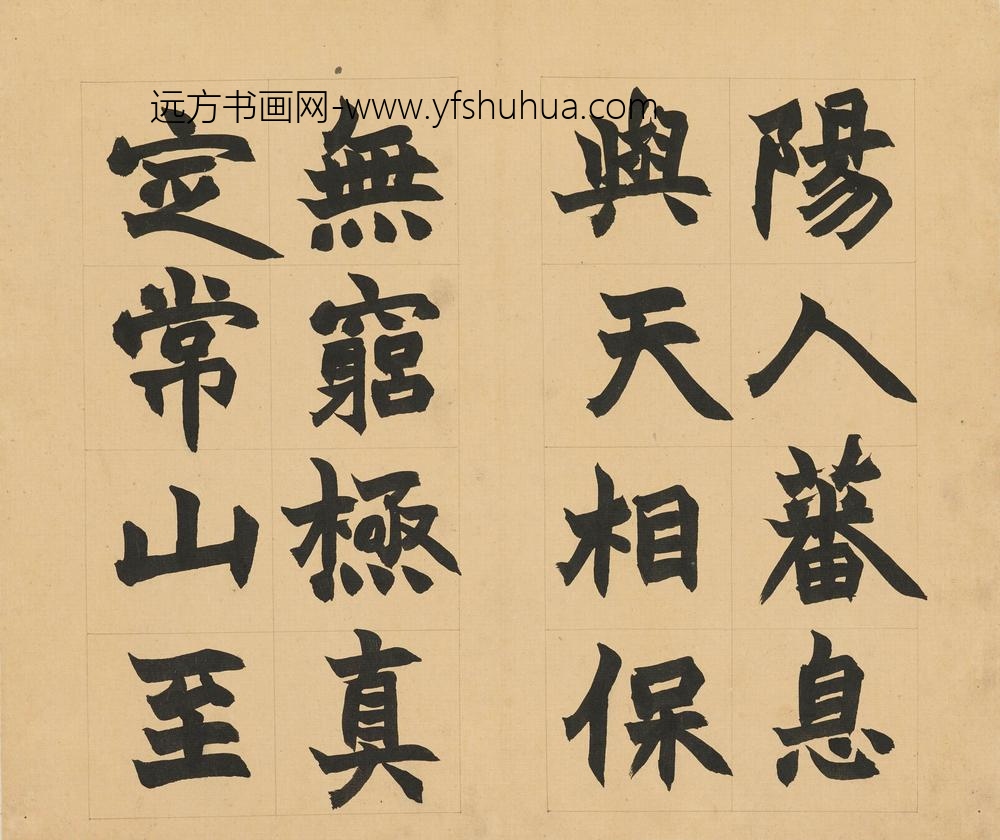 远方书画网-www.yfshuhua.com
陽人蕃息
與天相保
無窮極真
定常山至